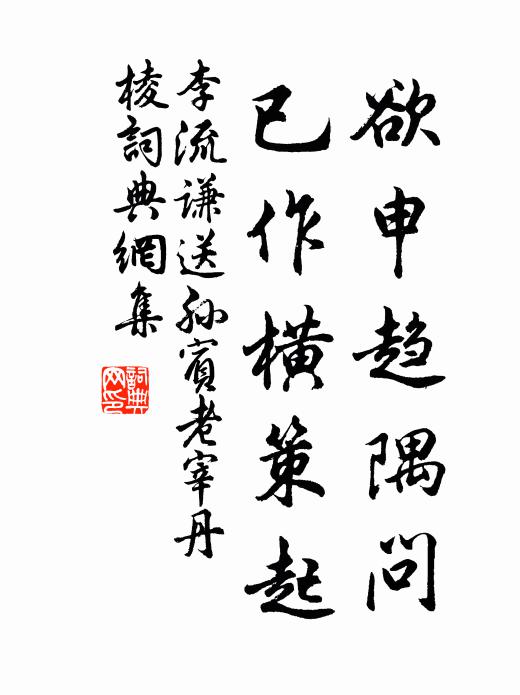 欲申趋隅问
已作横策起
李流谦送孙宾老宰丹
棱詞典網集
詞典网印